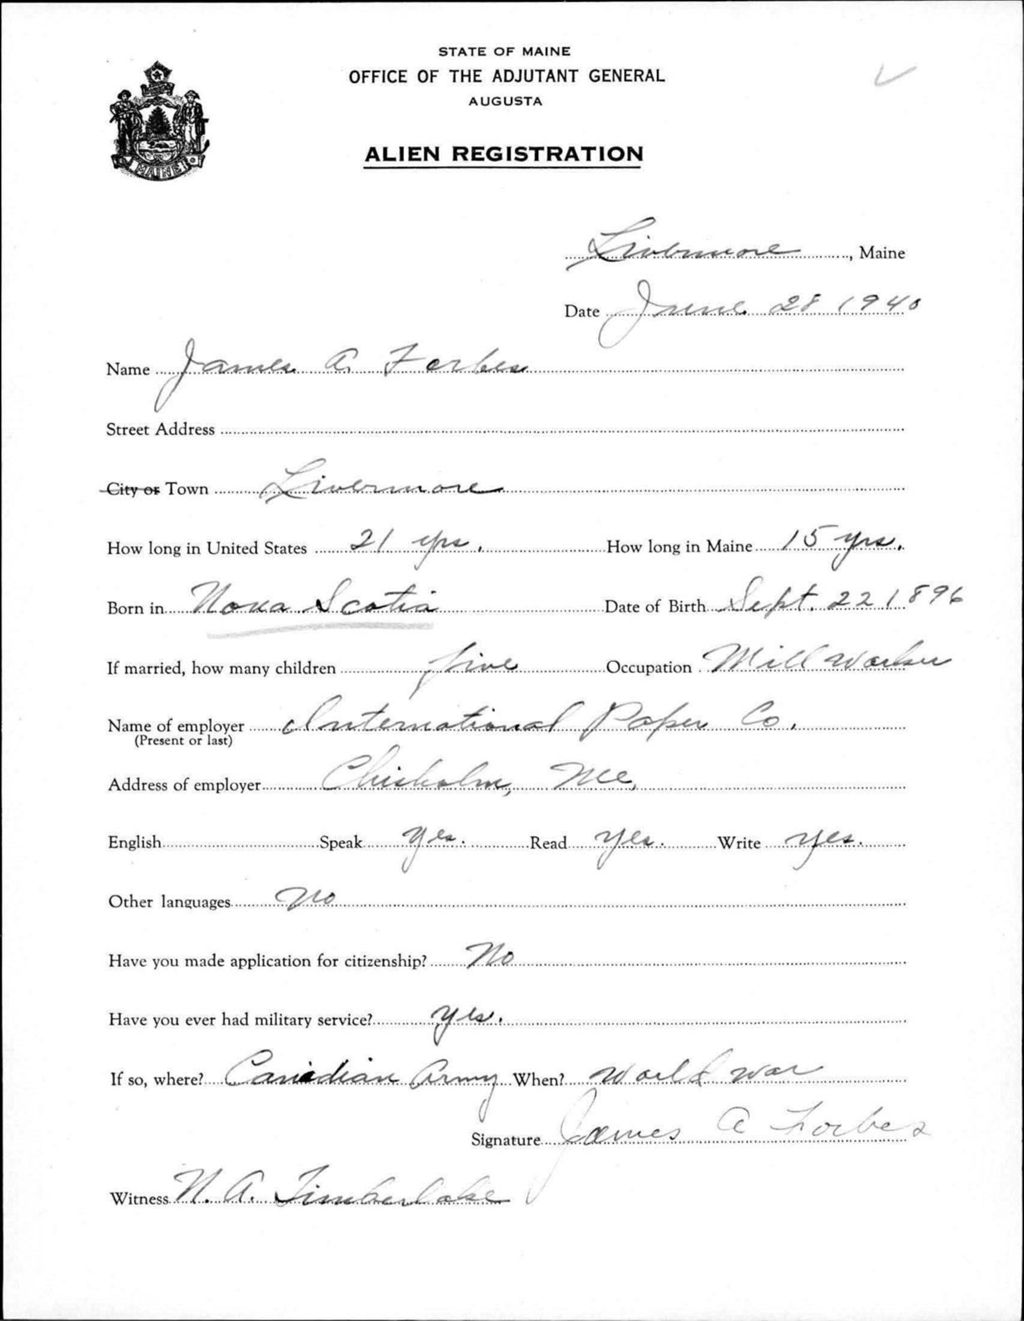 STATE OF MAINE
OFFICE OF THE ADJUTANT GENERAL
AUGUSTA
MAINE
ALIEN REGISTRATION
Livermore, Maine
Date June 28 1940
Name James A. Forbes
Street Address
City or Town Livermore
How long in United States 21 yrs. How long in Maine 15 yrs.
Born in Nova Scotia Date of Birth Sept. 22 1896
If married, how many children five Occupation Mill Worker
Name of employer International Paper Co.
(Present or last)
Address of employer Chisholm, Me.
English Speak Yes. Read Yes. Write Yes.
Other languages No
Have you made application for citizenship? No
Have you ever had military service? Yes.
If so, where? Canadian Army When? World War
Signature James A Forbes
Witness N. A. Timberlake